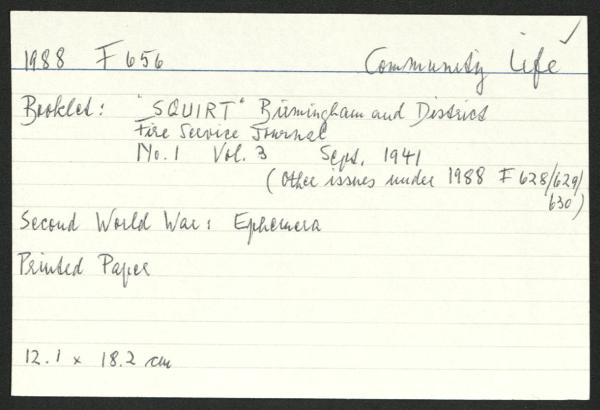 1988 F 656 Community Life ✓
Booklet: "SQUIRT" Birmingham and District
Fire Service Journal
No. 1 Vol. 3 Sept. 1941
(Other issues under 1988 F 628/629/
630)
Second World War: Ephemera
Printed Paper
12.1 x 18.2 cm